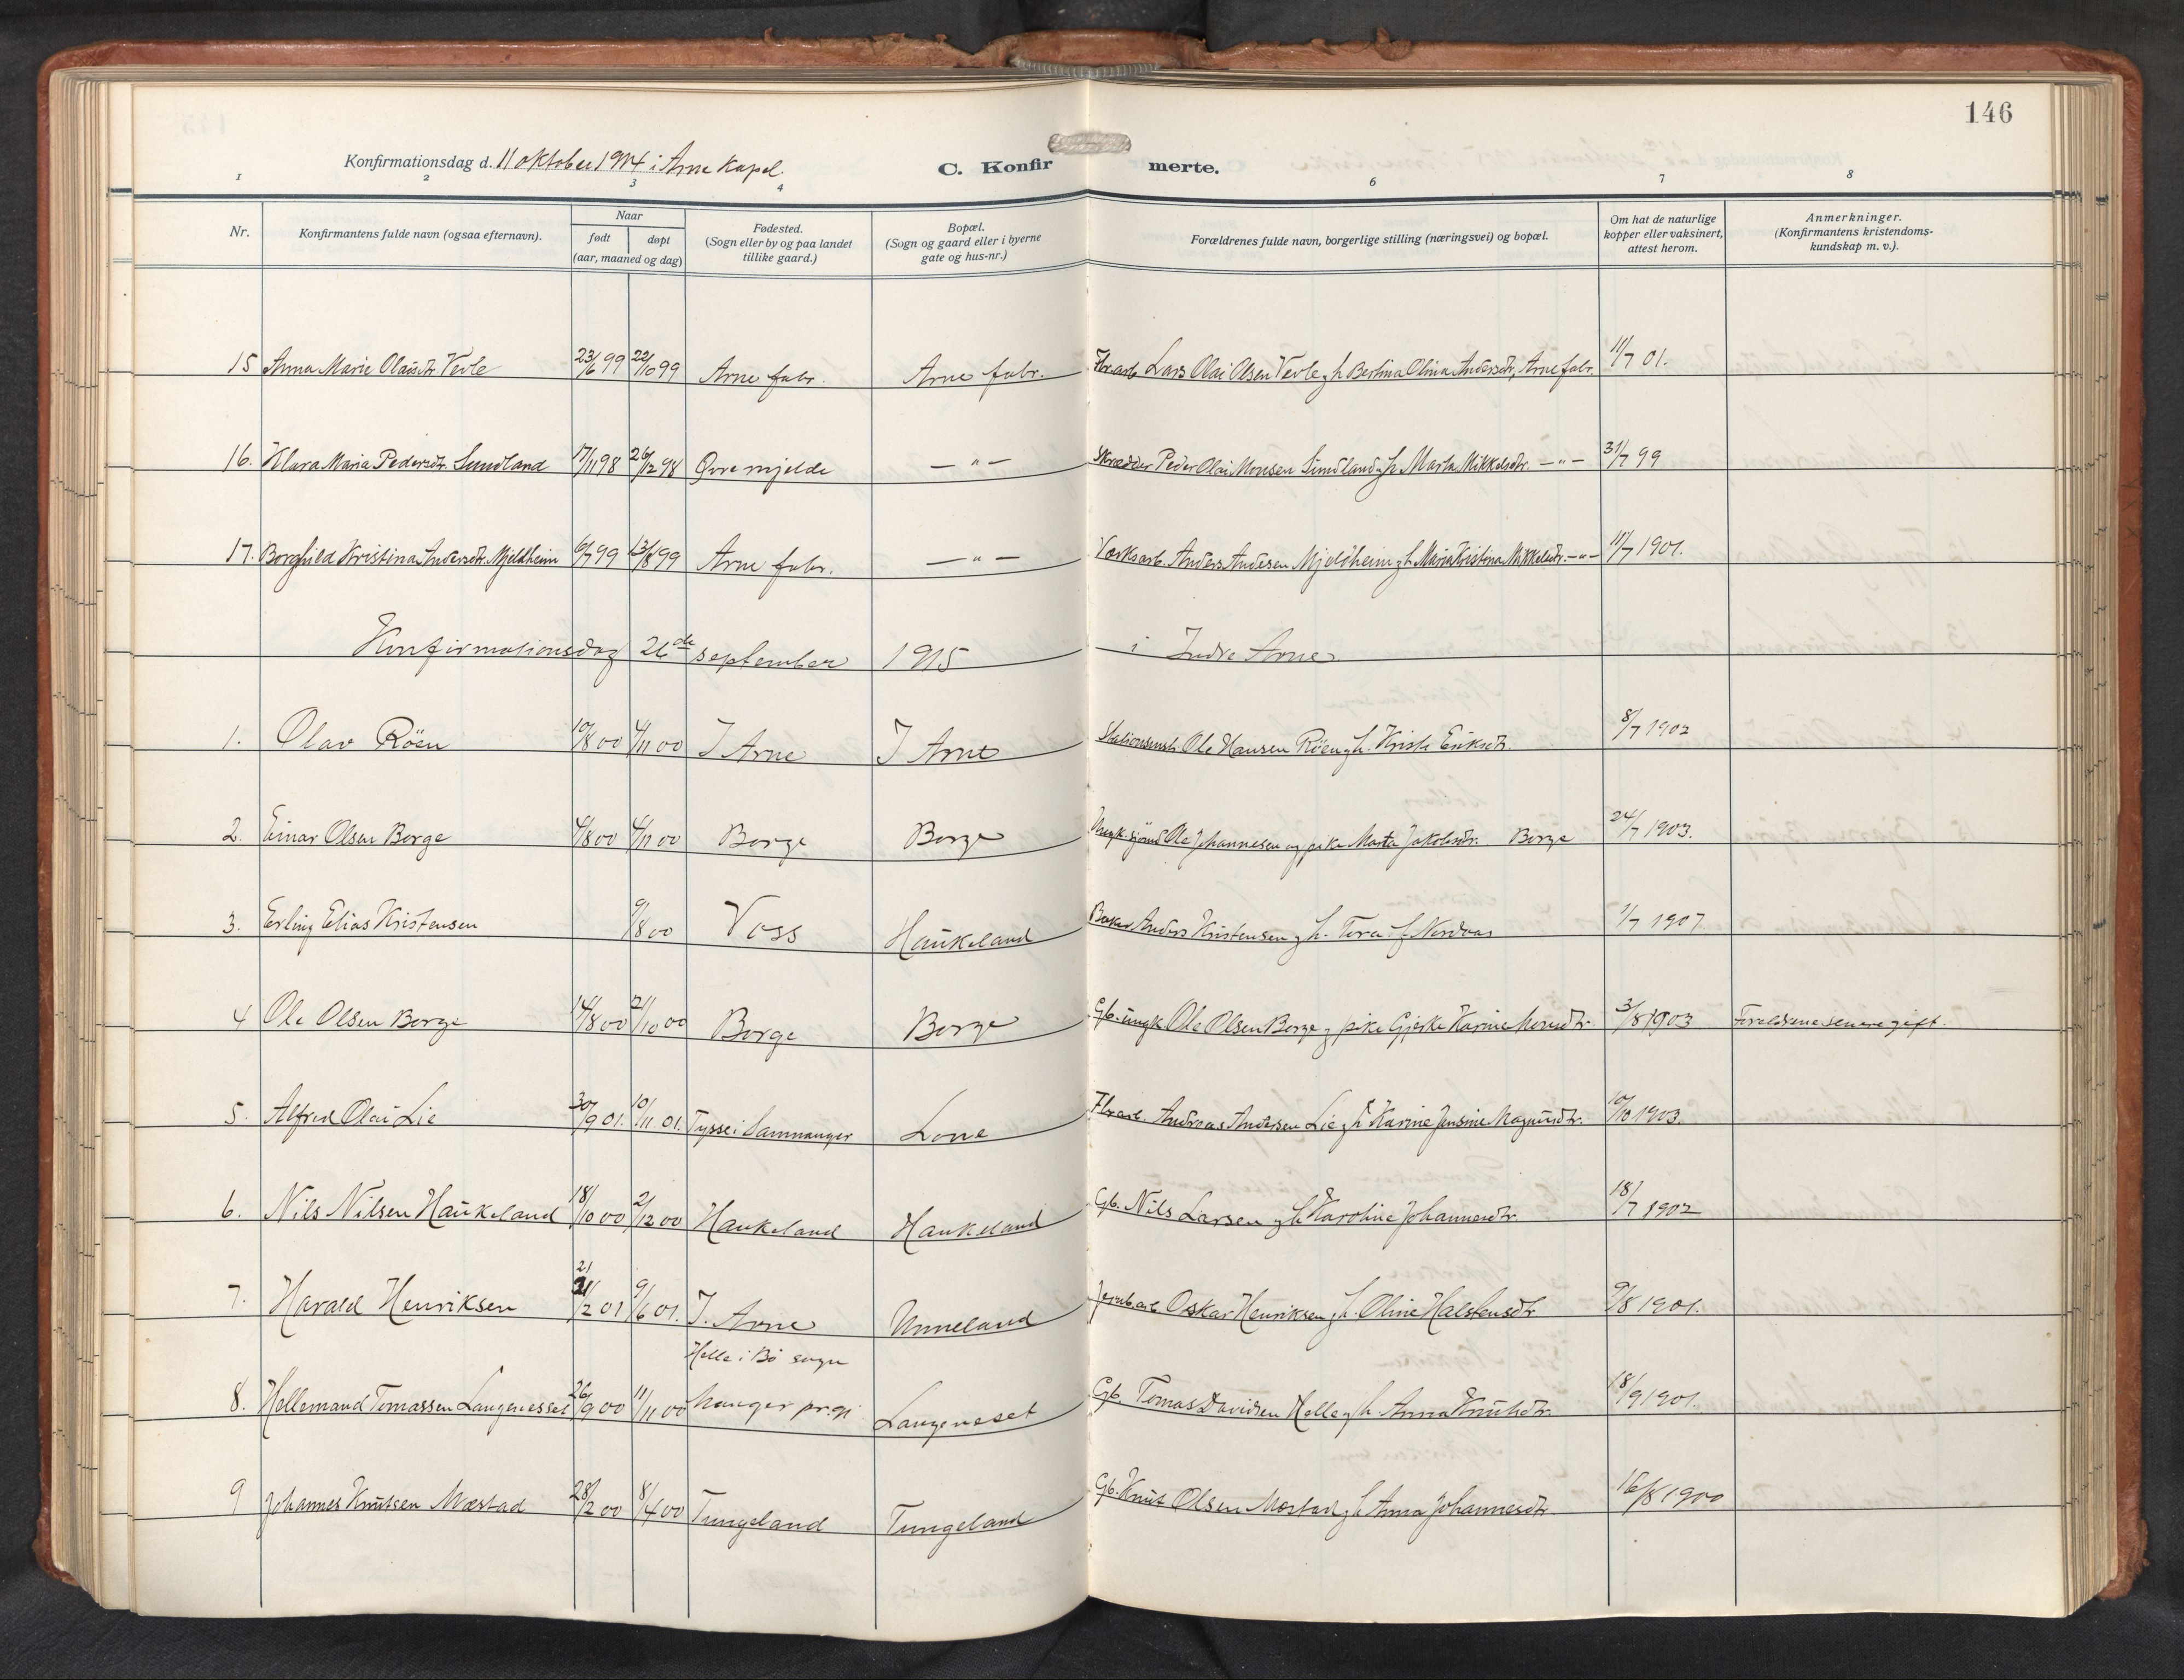 146
Konfirmationsdag d. 11 oktober 1914 i Arne Kapel.
C. Konfirmerte.
1 2 3 4 6 7 8
Nr.
Konfirmantens fulde navn (ogsaa efternavn).
Naar
født døpt
(aar, maaned og dag)
Fødested.
(Sogn eller by og paa landet
tillike gaard.)
Bopæl.
(Sogn og gaard eller i byerne
gate og hus-nr.)
Forældrenes fulde navn, borgerlige stilling (næringsvei) og bopæl.
Om hat de naturlige
kopper eller vaksinert,
attest herom.
Anmerkninger.
(Konfirmantens kristendoms-
kundskap m. v.).
15 Anna Marie Olaisdtr. Vevle 23/6 99 22/10 99 Arne fabr. Arne fabr. Lars Olai Olsen Vevle g h Bertina Olina Andersdtr, Arne fabr. 11/7 01.
16. Klara Maria Pedersdtr. Sundland 17/11 98 26/12 98 Øvre mjelde — " — Skrædder Peder Olai Monsen Sundland g h Marta Mikkelsdtr. — " — 31/7 99
17. Borghild Kristina Andersdtr. Mjeldheim 6/7 99 13/8 99 Arne fabr. — " — Værksarb. Anders Andersen Mjeldheim g h Maria Kristina Mikkelsdtr. — " — 11/7 1901.
Konfirmationsdag 26de september 1915 i Indre Arne
1. Olav Röen 10/8 00 4/11 00 I Arne I Arne Ole Hansen Röen g h. Eriksdtr. 8/7 1902
2. Einar Olsen Borge 4/8 00 4/11 00 Borge Borge Ungk. sjömd Ole Johannesen og pike Marta Jakobsdtr. Borge 24/7 1903.
3. Erling Elias Kristensen 9/8 00 Voss Haukeland Baker Anders Kristensen g h. Tora f. Nordaas 1/7 1907
4 Ole Olsen Borge 14/8 00 21/10 00 Borge Borge Gb. ungk. Ole Olsen Borge g pike Gjerke Karine Monsdtr. 3/8 1903 Foreldrene senere gift.
5. Alfred Olai Lie 30/9 01. 10/11 01. Tysse i Samnanger Lone Fbr.arb. Andreas Andersen Lie g h Karine Jensine Magnusdtr. 10/10 1903.
6. Nils Nilsen Haukeland 18/10 00 2/12 00 Haukeland Haukeland Gb. Nils Larsen g h Karoline Johannesdtr. 18/7 1902
7. Harald Henriksen 21 21/2 01 9/6 01. I. Arne Unneland Jernb. arb Oskar Henriksen g h. Oline Halstensdtr. 9/8 1901.
Helle i Bö sogn
8. Hellemand Tomassen Langenesset 26/9 00 11/11 00 hanger pr.gj Langeneset Gb. Tomas Davidsen Helle g h. Anna Knutsdtr. 18/9 1901.
9 Johannes Knutsen Mæstad 28/2 00 8/4 00 Tungeland Tungeland Gb. Knut Olsen Mæstad g h Anna Johannesdtr. 16/8 1900